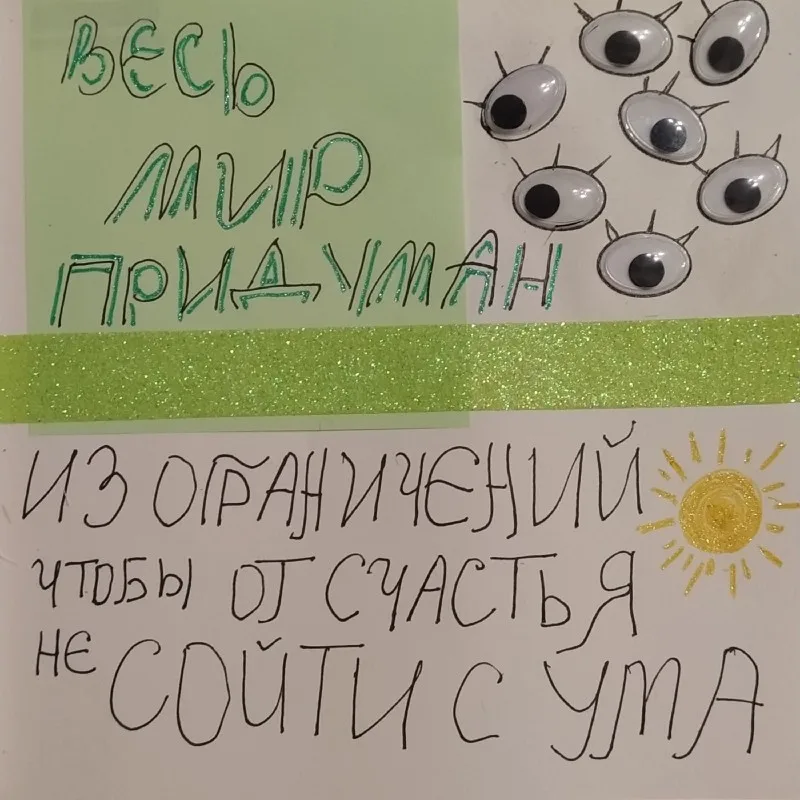 ВЕСЬ
МИР
ПРИДУМАН
ИЗ ОГРАНИЧЕНИЙ
ЧТОБЫ ОТ СЧАСТЬЯ
НЕ СОЙТИ С УМА